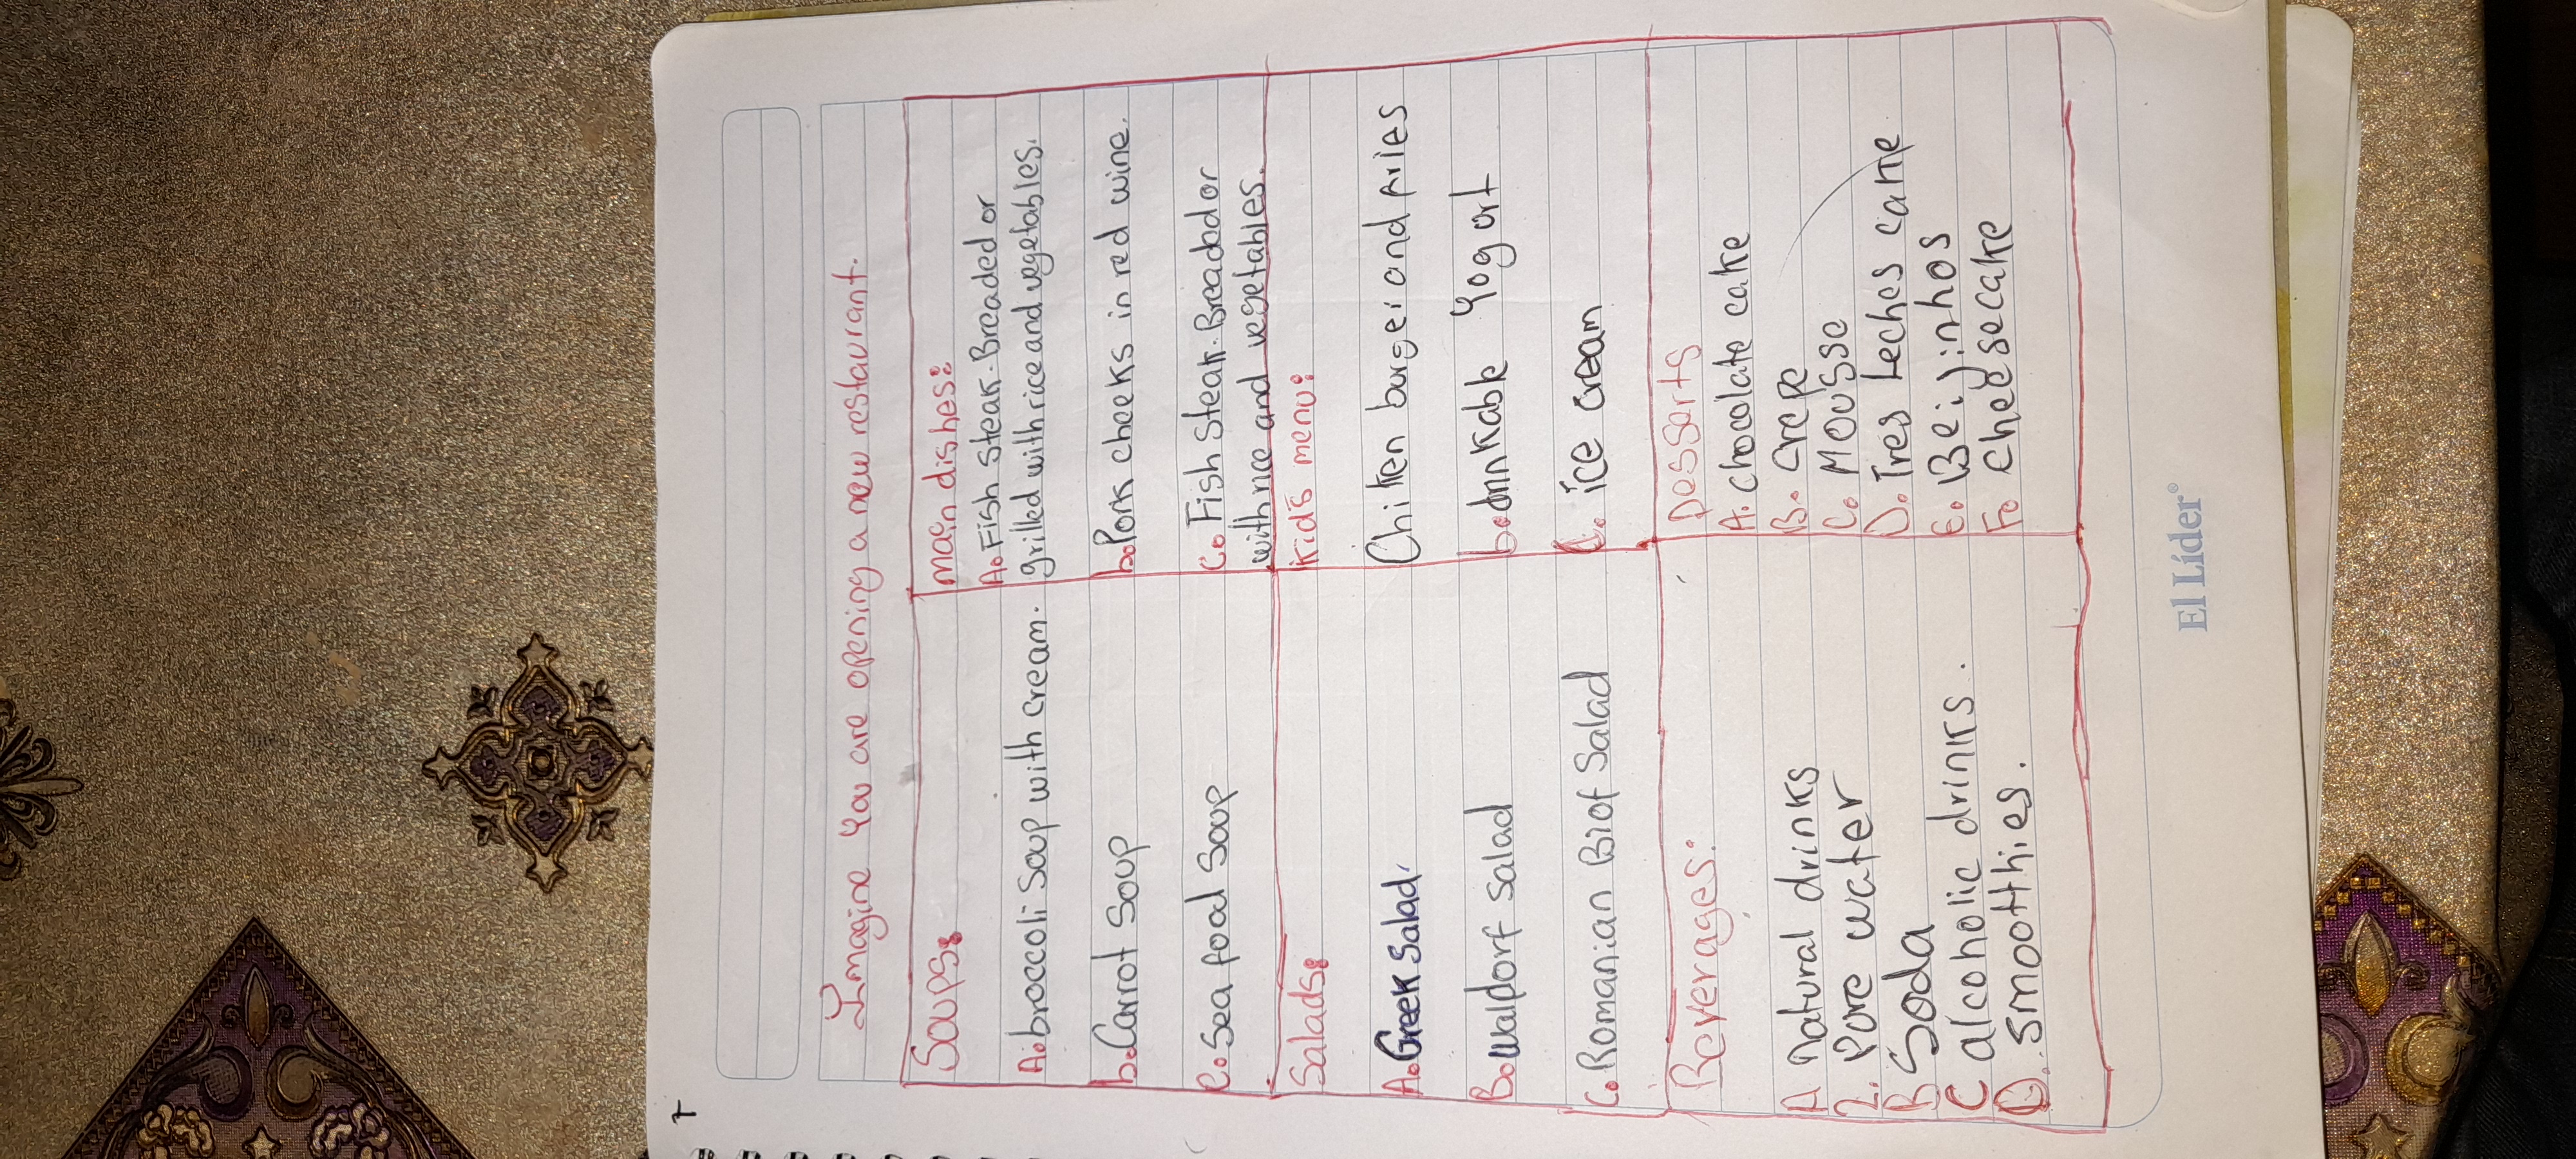 Imagine you are opening a new restaurant.
Soups:
A. broccoli Soup with cream.
b. Carrot Soup
C. Sea food Soup
main dishes:
A. Fish steak. Breaded or
grilled with rice and vegetables.
b. Pork cheeks in red wine.
C. Fish steak. Breaded or
with rice and vegetables.
Salads:
A. Greek Salad.
B. waldorf Salad
C. Romanian Biof Salad
Kid's menu:
Chiken burger and fries
b. drinkable yogort
C. ice cream
Beverages:
A natural drinks
2. Pure water
B Soda
C alcoholic drinks.
D. smootthies.
Desserts
A. chocolate cake
B. Crepe
C. Mousse
D. Tres Leches cake
E. Beijinhos
F. cheesecake
El Líder®